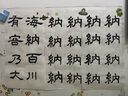 納納納納
納納納納
納納納納
納納納納
海納百川
有容乃大